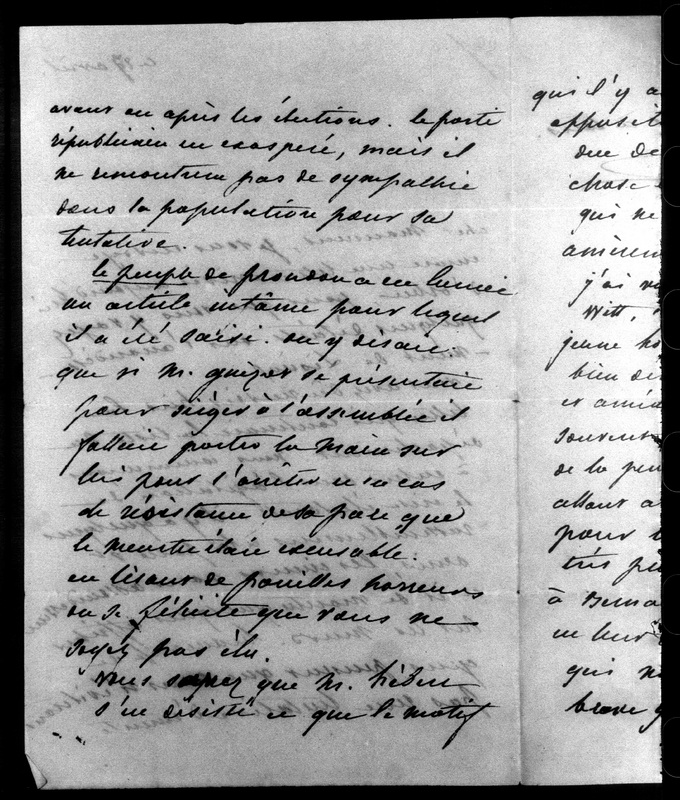 avant ou après les élections. le parti
républicain est exaspéré, mais il
ne rencontrera pas de sympathie
dans la population pour sa
tentative.
le peuple de proudon a eu hier
un article infâme pour lequel
il a été saisi. on y disait
que si M. guizot se présentait
pour siéger à l'assemblée il
fallait porter la main sur
lui pour l'arrêter et en cas
de résistance de sa part que
le meurtre était excusable.
en lisant de pareilles horreurs
on se félicite que vous ne
soyez pas élu.
vous savez que M. hébert
s'est désisté et que le motif
qui l'y a
opposit
due de
chose
qui ne
amèrem
j'ai vu
Witt,
jeune ho
bien de
et amic
souvent
de la peu
allant a
pour
très pe
à
en leur
qui n
brave g